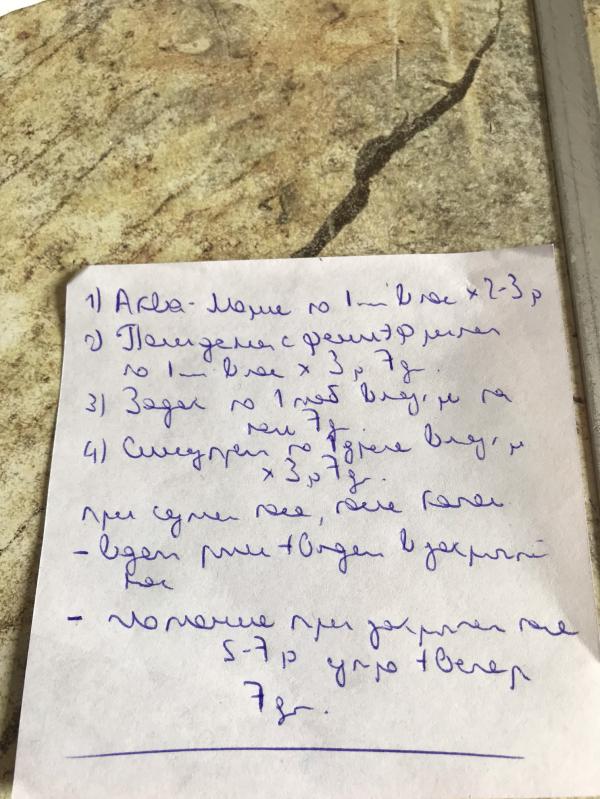 1) Аква-Марис по 1 в нос × 2-3 р
2) Полидекса с фенилэфрином
по 1 в нос × 3 р 7 дн.
3) Зодак по 1 таб внутрь на
ночь 7 дн.
4) Синупрет по 1 драже внутрь
× 3 р 7 дн.
при сухом носе, после капель
- вдох ртом + выдох в закрытый
нос
- глотание при закрытом носе
5-7 р утро + вечер
7 дн.